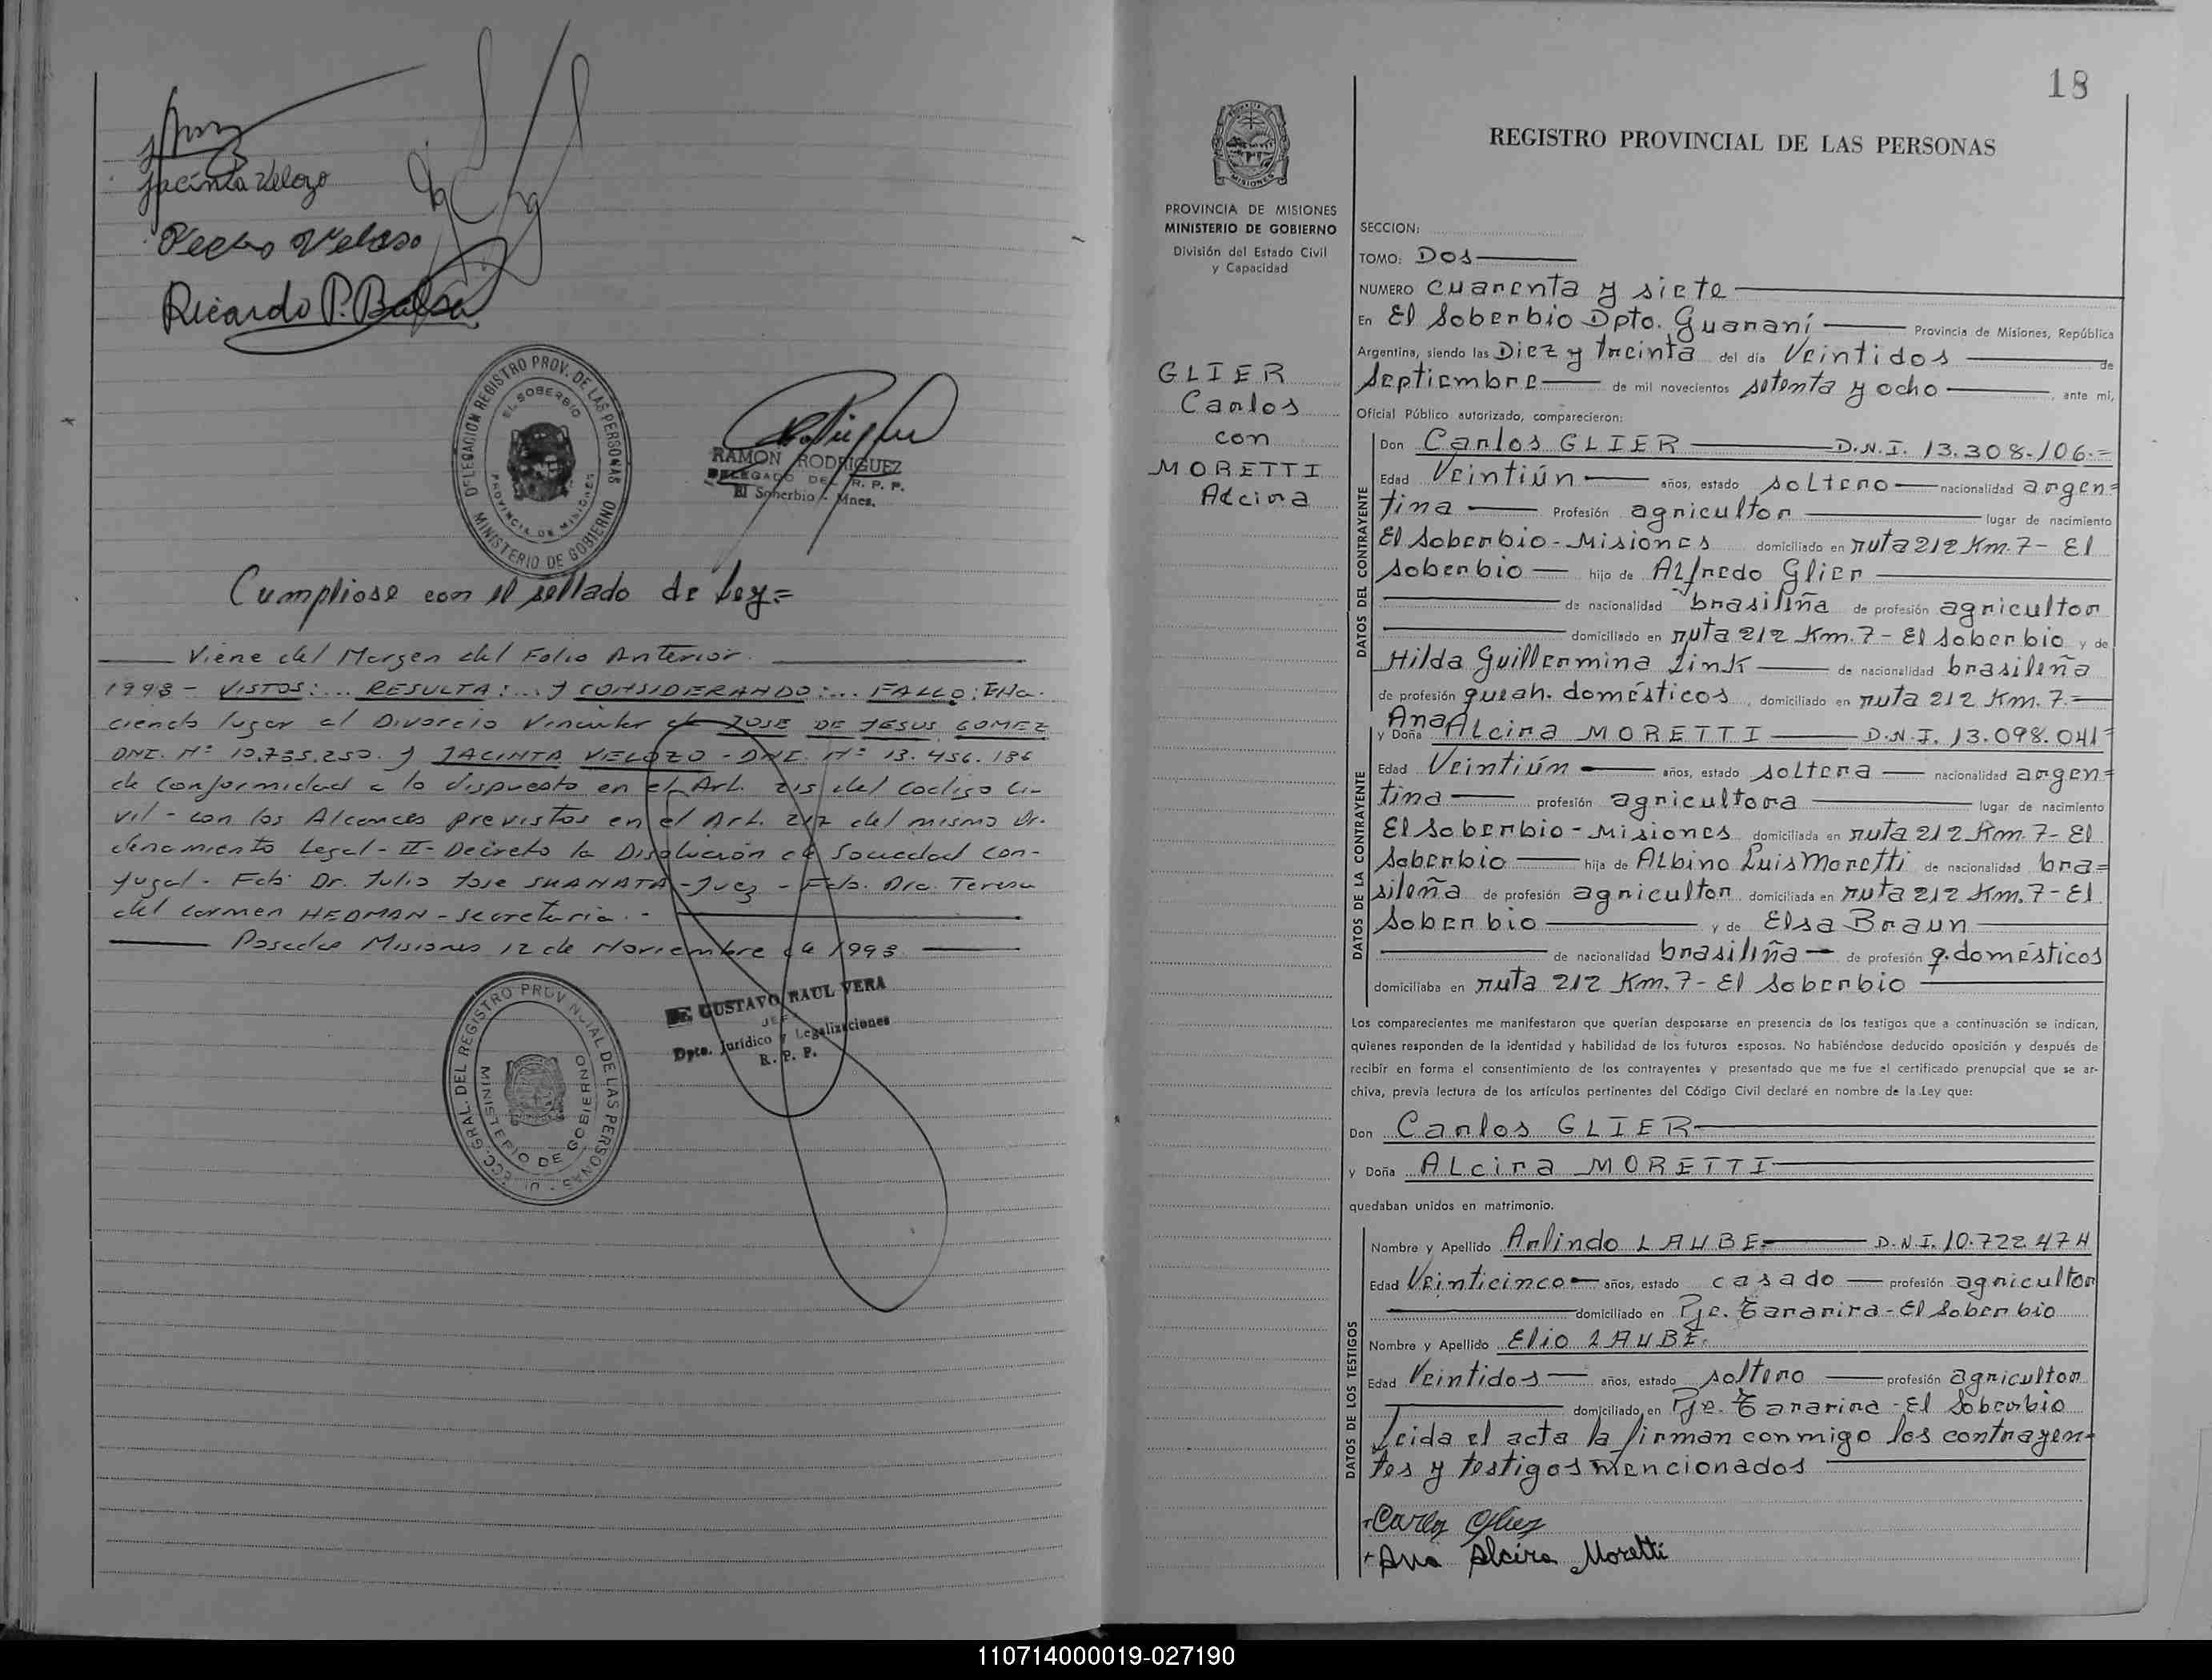 Jacinta Velozo
Pedro Velozo
Ricardo P. Balsa
DELEGACION REGISTRO PROV. DE LAS PERSONAS
EL SOBERBIO
PROVINCIA DE MISIONES
MINISTERIO DE GOBIERNO
RAMON RODRIGUEZ
DELEGADO DEL R. P. P.
El Soberbio - Mnes.
Cumpliose con el sellado de Ley=
Viene del Margen del Folio Anterior.
1998 - VISTOS:... RESULTA:... y CONSIDERANDO:... FALLO: I Ha-
ciendo lugar al Divorcio Vincular de JOSE DE JESUS GOMEZ
DNI. Nº 10.735.250. y JACINTA VELOZO - DNI. Nº 13.456.186
de conformidad a lo dispuesto en el Art. 215 del Codigo Ci-
vil - con los Alcances previstos en el Art. 217 del mismo Or-
denamiento Legal - II - Decreto la Disolución de Sociedad Con-
yugal - Fdo. Dr. Julio Jose SKANATA - Juez - Fdo. Dra. Teresa
del Carmen HEDMAN - Secretaria. -
Posadas Misiones 12 de Noviembre de 1998.
DE GUSTAVO RAUL VERA
JEFE
Dpto. Jurídico y Legalizaciones
R. P. P.
DCC. GRAL. DEL REGISTRO PROVINCIAL DE LAS PERSONAS
MINISTERIO DE GOBIERNO
18
MISIONES
PROVINCIA DE MISIONES
MINISTERIO DE GOBIERNO
División del Estado Civil
y Capacidad
GLIER
Carlos
con
MORETTI
Alcira
REGISTRO PROVINCIAL DE LAS PERSONAS
SECCION:
TOMO: Dos
NUMERO cuarenta y siete
En El Soberbio Dpto. Guaraní Provincia de Misiones, República
Argentina, siendo las Diez y treinta del día Veintidos de
Septiembre de mil novecientos setenta y ocho, ante mi,
Oficial Público autorizado, comparecieron:
DATOS DEL CONTRAYENTE
Don Carlos GLIER D.N.I. 13.308.106.=
Edad Veintiún años, estado soltero nacionalidad argen=
tina Profesión agricultor lugar de nacimiento
El Soberbio - Misiones domiciliado en ruta 212 Km. 7 - El
Soberbio hijo de Alfredo Glier
de nacionalidad brasileña de profesión agricultor
domiciliado en ruta 212 Km. 7 - El Soberbio y de
Hilda Guillermina Link de nacionalidad brasileña
de profesión queah. domésticos, domiciliado en ruta 212 Km. 7.
DATOS DE LA CONTRAYENTE
Ana
y Doña Alcira MORETTI D.N.I. 13.098.041=
Edad Veintiún años, estado soltera nacionalidad argen=
tina profesión agricultora lugar de nacimiento
El Soberbio - Misiones domiciliada en ruta 212 Km. 7 - El
Soberbio hija de Albino Luis Moretti de nacionalidad bra=
sileña de profesión agricultor domiciliada en ruta 212 Km. 7 - El
Soberbio y de Elsa Braun
de nacionalidad brasileña de profesión q. domésticos
domiciliaba en ruta 212 Km. 7 - El Soberbio
Los comparecientes me manifestaron que querían desposarse en presencia de los testigos que a continuación se indican,
quienes responden de la identidad y habilidad de los futuros esposos. No habiéndose deducido oposición y después de
recibir en forma el consentimiento de los contrayentes y presentado que me fue el certificado prenupcial que se ar-
chiva, previa lectura de los artículos pertinentes del Código Civil declaré en nombre de la Ley que:
Don Carlos GLIER
y Doña Alcira MORETTI
quedaban unidos en matrimonio.
DATOS DE LOS TESTIGOS
Nombre y Apellido Arlindo LAUBE D.N.I. 10.722.474
Edad Veinticinco años, estado casado profesión agricultor
domiciliado en Pje. Tararira - El Soberbio
Nombre y Apellido Elio LAUBE.
Edad Veintidos años, estado soltero profesión agricultor
domiciliado en Pje. Tararira - El Soberbio
Leida el acta la firman conmigo los contrayen-
tes y testigos mencionados
Carlos Glier
Ana Alcira Moretti
110714000019-027190